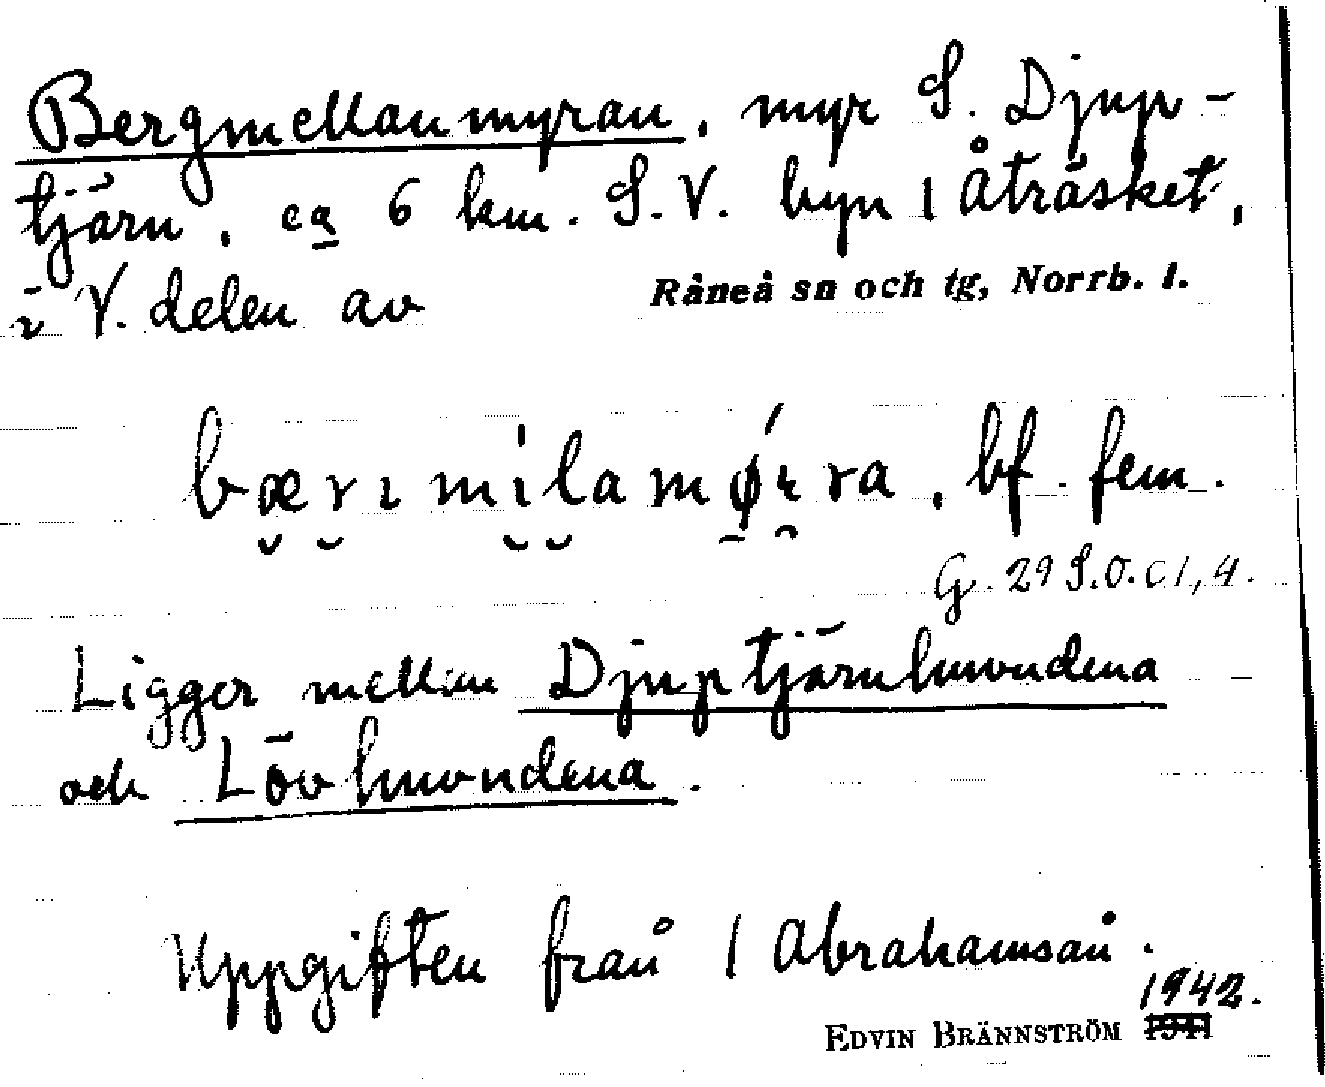 Bergmellanmyran, myr S. Djup-
tjärn, ca 6 km. S.V. byn 1 Åträsket,
i V. delen av Råneå sn och tg, Norrb. l.
bærımılamǿ̨ra, bf. fem.
G. 29 S.O. c 1, 4.
Ligger mellan Djuptjärnhuvudena
och Lövhuvudena.
Uppgiften från 1 Abrahamsån.
1942.
EDVIN BRÄNNSTRÖM 1941